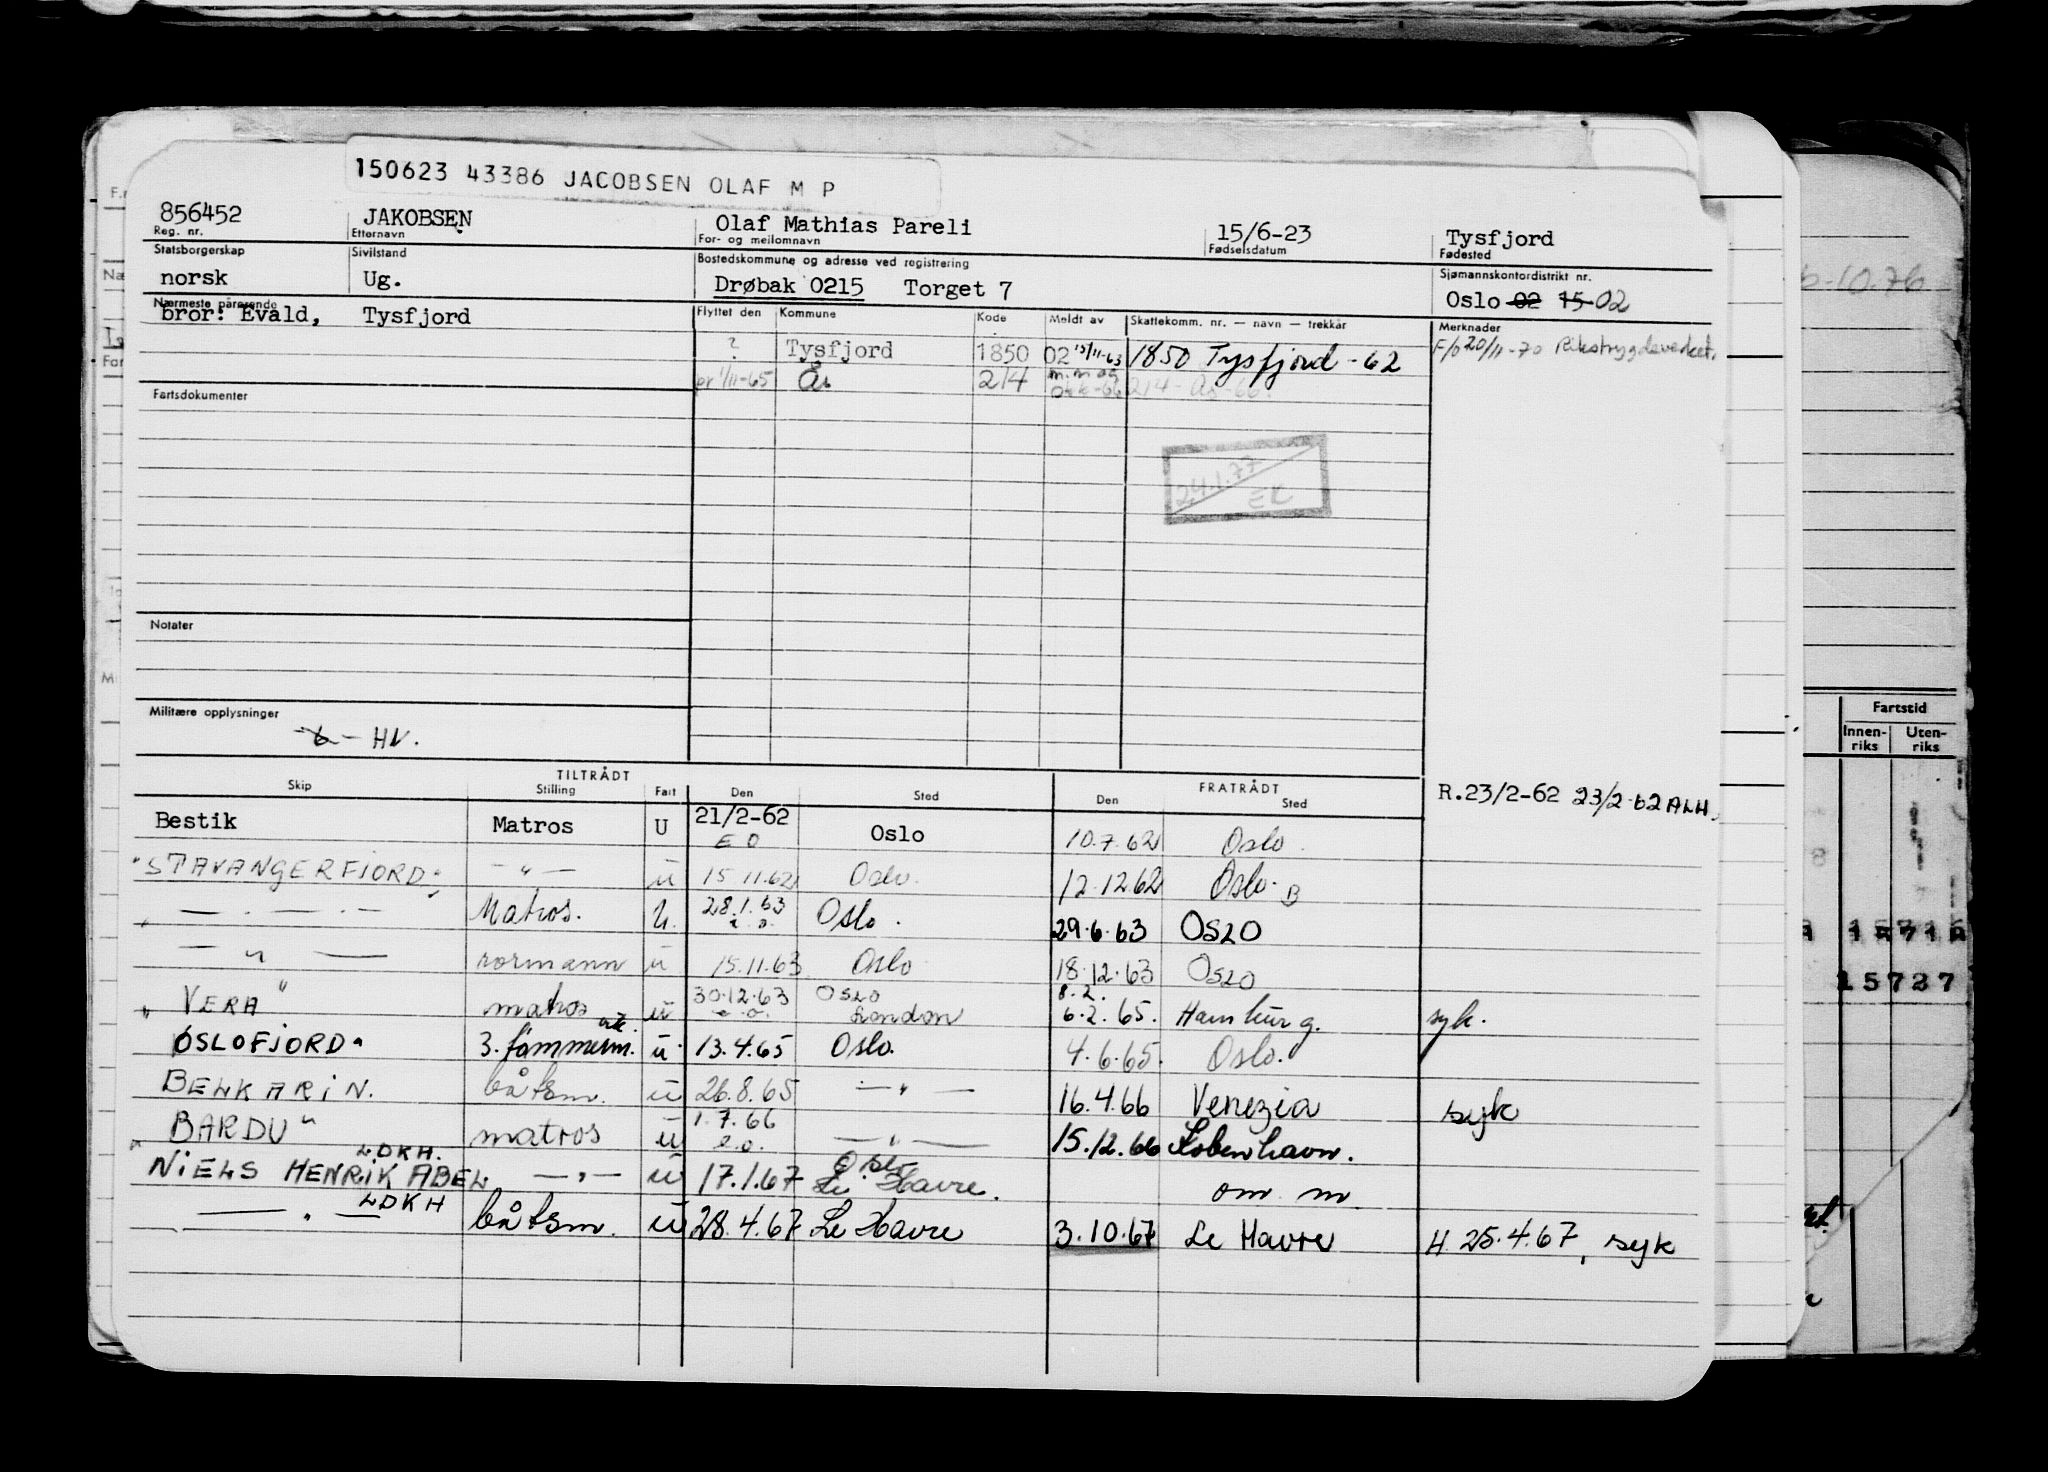 150623 43386 JACOBSEN OLAF M P
856452 JAKOBSEN Olaf Mathias Pareli 15/6-23 Tysfjord
Reg. nr. Etternavn For- og mellomnavn Fødselsdatum Fødested
Statsborgerskap Sivilstand Bostedskommune og adresse ved registrering Sjømannskontordistrikt nr.
norsk Ug. Drøbak 0215 Torget 7 Oslo 02 15 02
Nærmeste pårørende Flyttet den Kommune Kode Meldt av Skattekomm. nr. — navn — trekkår Merknader
bror: Evald, Tysfjord
? Tysfjord 1850 02 15/11-63 1850 Tysfjord - 62 F/b 20/11-70 Rikstrygdeverket.
pr 1/11-65 Ås 214 m.m og 214 - Ås - 66.
Fartsdokumenter
24.1.77
EK
Notater
Militære opplysninger
-6- HV.
TILTRÅDT FRATRÅDT
Skip Stilling Fart Den Sted Den Sted
R.23/2-62 23/2-62 ALH.
Bestik Matros U 21/2-62 Oslo 10.7.62 Oslo
E O
"STAVANGERFJORD" - " - u 15.11.62 Oslo. 12.12.62 Oslo. B
" - . - . - Matros. u. 28.1.63 Oslo. 29.6.63 OSLO
e.o.
- " - rormann u 15.11.63 Oslo 18.12.63 OSLO
"VERA" matros u 30.12.63 OSLO 8.2.
e.o. London 6.2.65. Hamburg. syk.
OSLOFJORD" 3. tømmerm. u 13.4.65 Oslo. 4.6.65. Oslo.
BELKARIN. båtsm. u 26.8.65 - " - 16.4.66 Venezia syk
"BARDU" matros u 1.7.66 - " - 15.12.66 København.
e.o.
LDKH. Oslo
NIELS HENRIK ABEL - " - u 17.1.67 Le Havre. om. m
LDKH
- " - båtsm. u 28.4.67 Le Havre 3.10.67 Le Havre H. 25.4.67, syk
Fartstid
Innen-riks Uten-riks
15727